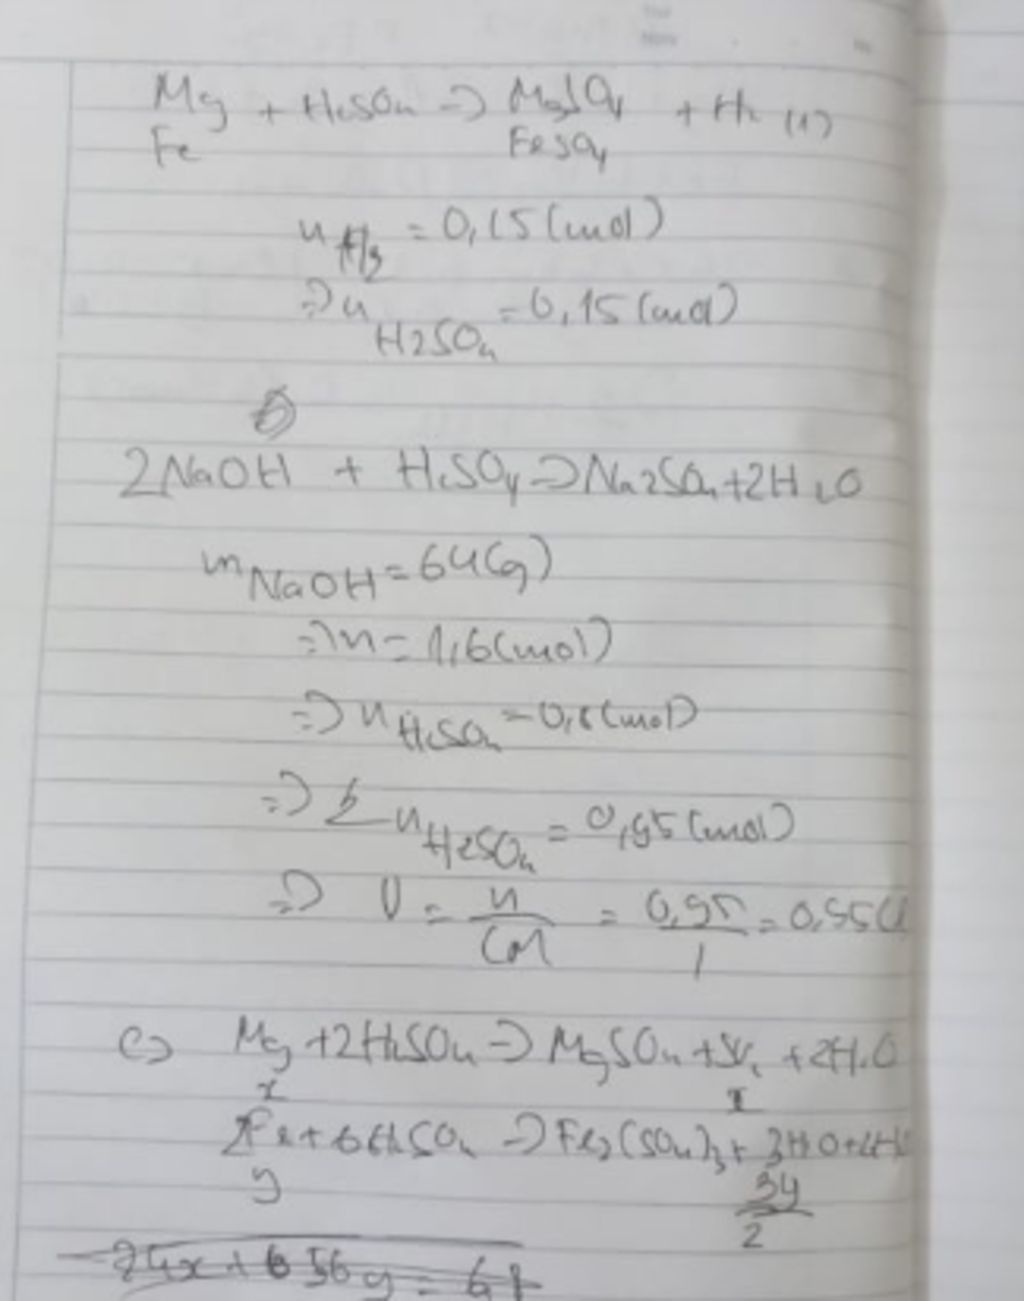 Mg + H2SO4 => MgSO4 + H2 (1)
Fe FeSO4
n H2 = 0,15 (mol)
=> n H2SO4 = 0,15 (mol)
2NaOH + H2SO4 => Na2SO4 + 2H2O
m NaOH = 64 (g)
=> n = 1,6 (mol)
=> n H2SO4 = 0,8 (mol)
=> Σ n H2SO4 = 0,95 (mol)
=> V = n / CM = 0,95 / 1 = 0,95 (l
c) Mg + 2H2SO4 => MgSO4 + SO2 + 2H2O
x x
2Fe + 6H2SO4 => Fe2(SO4)3 +
y 3y / 2
24x + 56y =